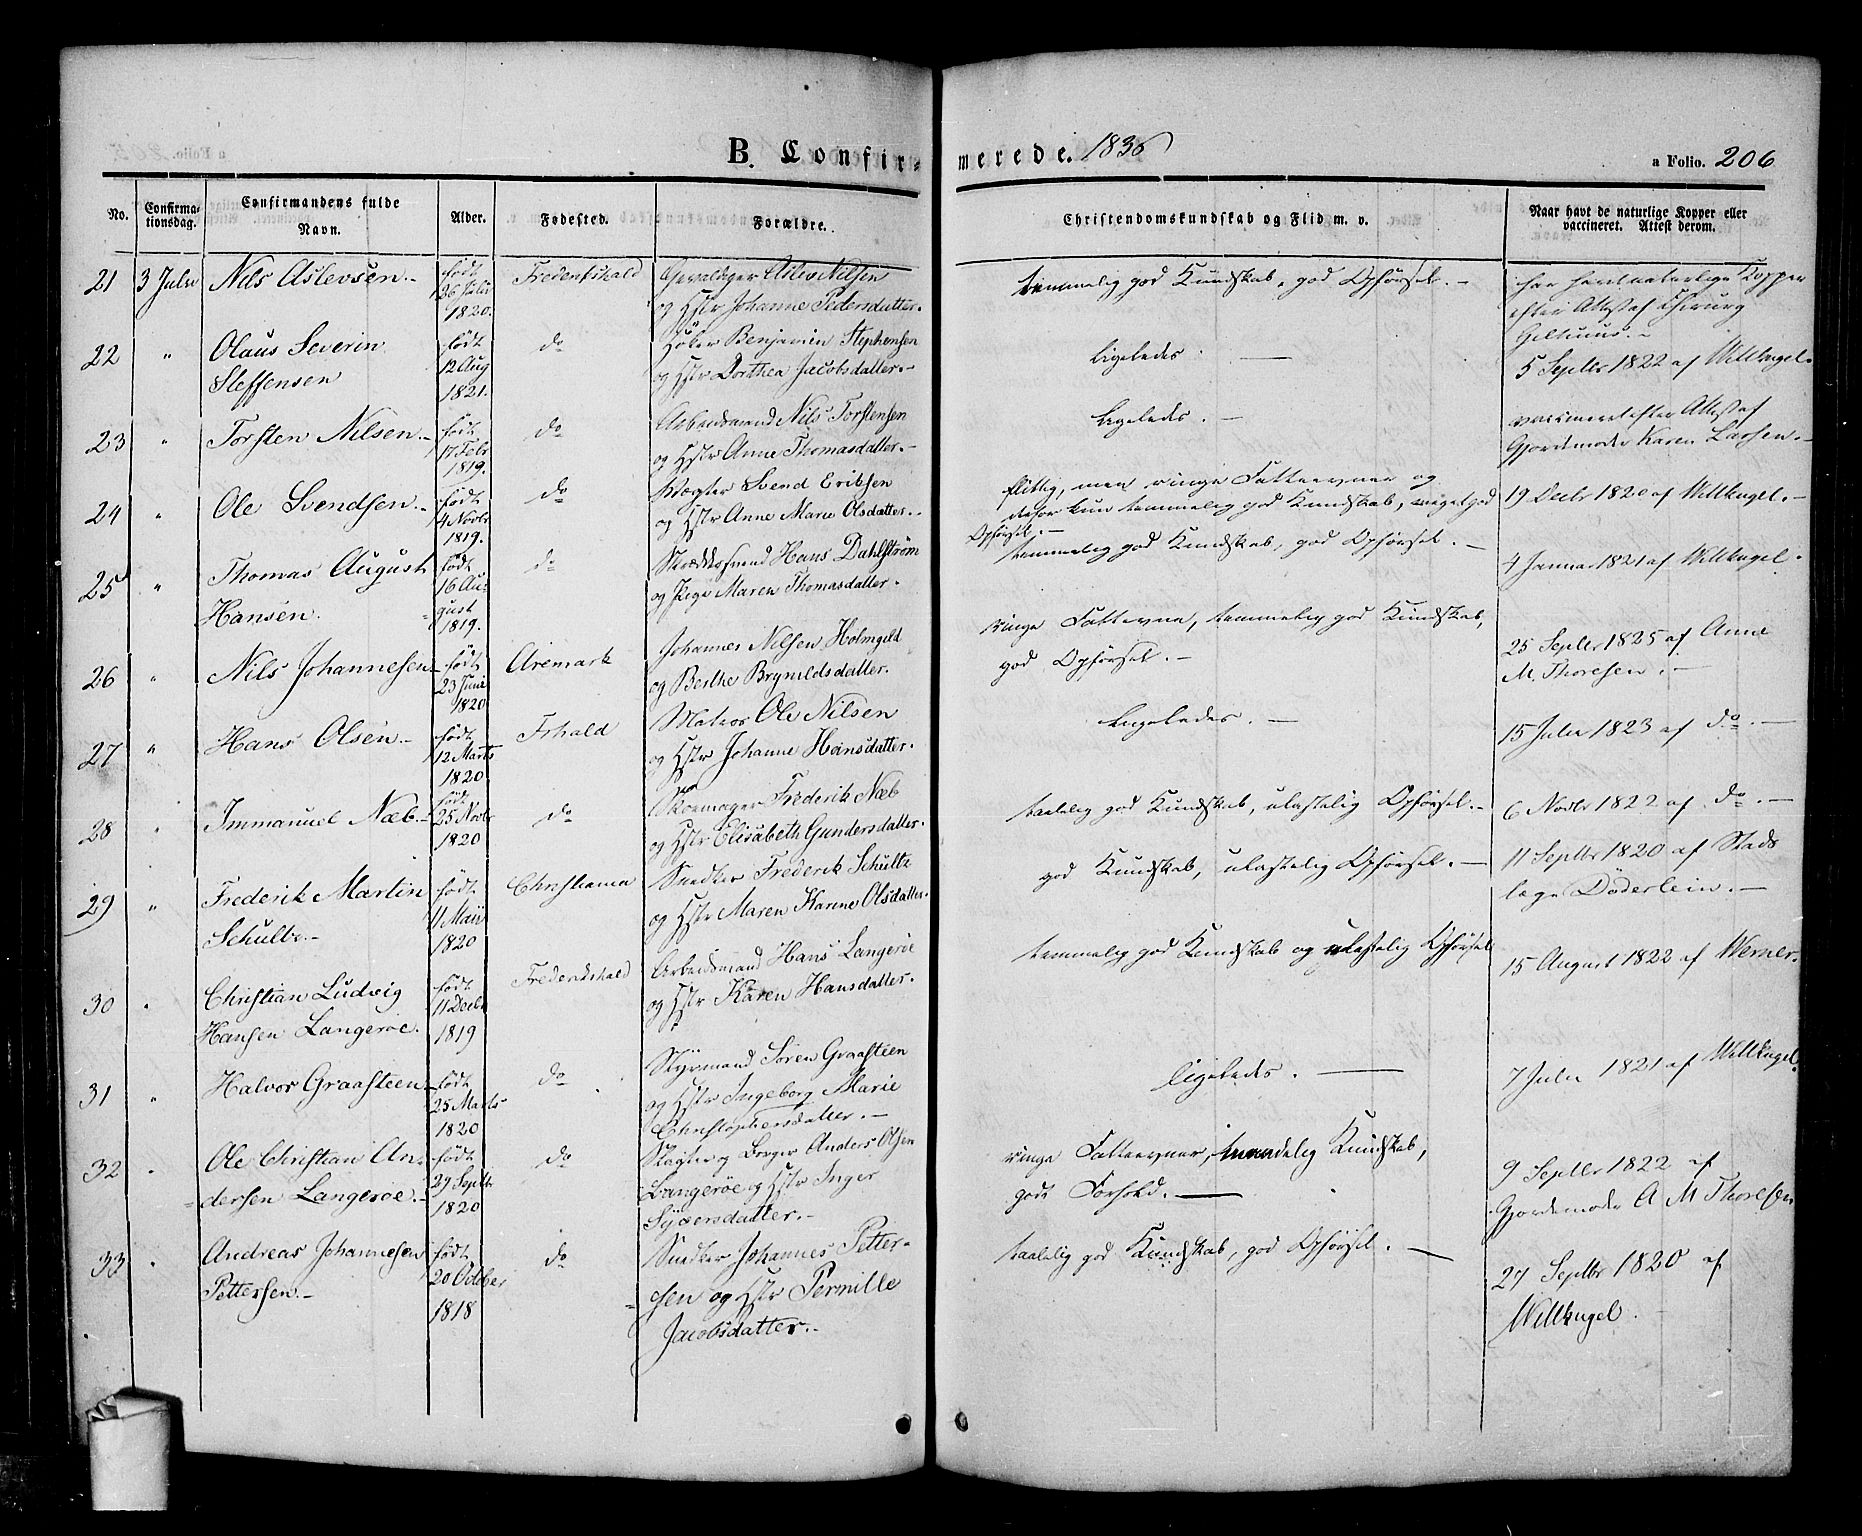 B. Confirmerede. 1836
a Folio. 206
No. Confirmationsdag. Confirmandens fulde Navn. Alder. Fødested. Forældre. Christendomskundskab og Flid m. v. Naar havt de naturlige Kopper eller vaccineret. Attest derom.
21 3 Julii Nils Aslevsen.- født 26 Julii 1820. Fredrikshald Gevaldiger Aslev Nilsen
og Hstr Johanne Pedersdatter.
temmelig god Kundskab, god Opførsel.-
har havt naturlige Kopper
efter Attest af Chirurg
22 " Olaus Severin Steffensen født 12 Aug 1821. do Høker Benjamin Stephensen
og Hstr Dorthea Jacobsdatter.-
Ligeledes. —
5 Septbr 1822 af Willkugel.
23 " Torsten Nilsen.- født 17 Febr 1819. do Arbeidsmand Nils Torstensen
og Hstr Anne Thomasdatter.-
Ligeledes. —
vaccineret efter Attest af
Gjordemoder Karen Larsen.-
24 " Ole Svendsen.- født 4 Novbr 1819. do Vægter Svend Eriksen
og Hstr Anne Marie Olsdatter.-
flittig, men ringe Fatteevner og
derfor kun temmelig god Kundskab, meget god
Opførsel.-
19 Decbr 1820 af Willkugel.-
25 " Thomas August Hansen. født 16 August 1819. do Skrædersvend Hans Dahlstrøm
og Pige Maren Thomasdatter.
temmelig god Kundskab, god Opførsel.-
4 Januar 1821 af Willkugel.
26 " Nils Johannesen født 23 Junii 1820 Aremark Johannes Nilsen Holmgild
og Berthe Brynildsdatter.
ringe Fatteevne, temmelig god Kundskab,
god Opførsel.-
25 Septbr 1825 af Anne
M. Thoresen.-
27 " Hans Olsen.- født 12 Marts 1820 Frhald Matros Ole Nilsen
og Hstr Johanne Hansdatter.
Ligeledes. —
15 Julii 1823 af do.-
28 " Immanuel Næb.- født 25 Novbr 1820 do Skomager Frederik Næb
og Hstr Elisabeth Gundersdatter.
taalelig god Kundskab, ulastelig Opførsel.-
6 Novbr 1822 af do.-
29 " Frederik Martin Schultz.- født 11 Maii 1820 Christiania Snedker Frederik Schultz
og Hstr Maren Karine Olsdatter.
god Kundskab, ulastelig Opførsel.-
11 Septbr 1820 af Stads
læge Döderlein.-
30 " Christian Ludvig Hansen Langeröe. født 11 Decbr 1819 Frederikshald Arbeidsmand Hans Langeröe
og Hstr Karen Hansdatter.
temmelig god Kundskab og ulastelig Opførsel
15 August 1822 af Werner.
31 " Halvor Graasteen født 25 Marts 1820 do Styrmand Sören Graasteen
og Hstr Ingeborg Marie
Christophersdatter.-
Ligeledes. —
7 Julii 1821 af Willkugel.
32 " Ole Christian Andersen Langeröe.- født 29 Septbr 1820 do Slagter og Borger Anders Olsen
Langeröe og Hstr Inger
Syversdatter.-
ringe Fatteevner, Kundskab,
godt Forhold.-
9 Septbr 1822 af
Gjordemoder A M Thoresen
33 " Andreas Johannesen Pettersen.- født 20 October 1818 do Snedker Johannes Petter-
sen og Hstr Pernille
Jacobsdatter.-
taalelig god Kundskab, god Opførsel.-
27 Septbr 1820 af
Willkugel.